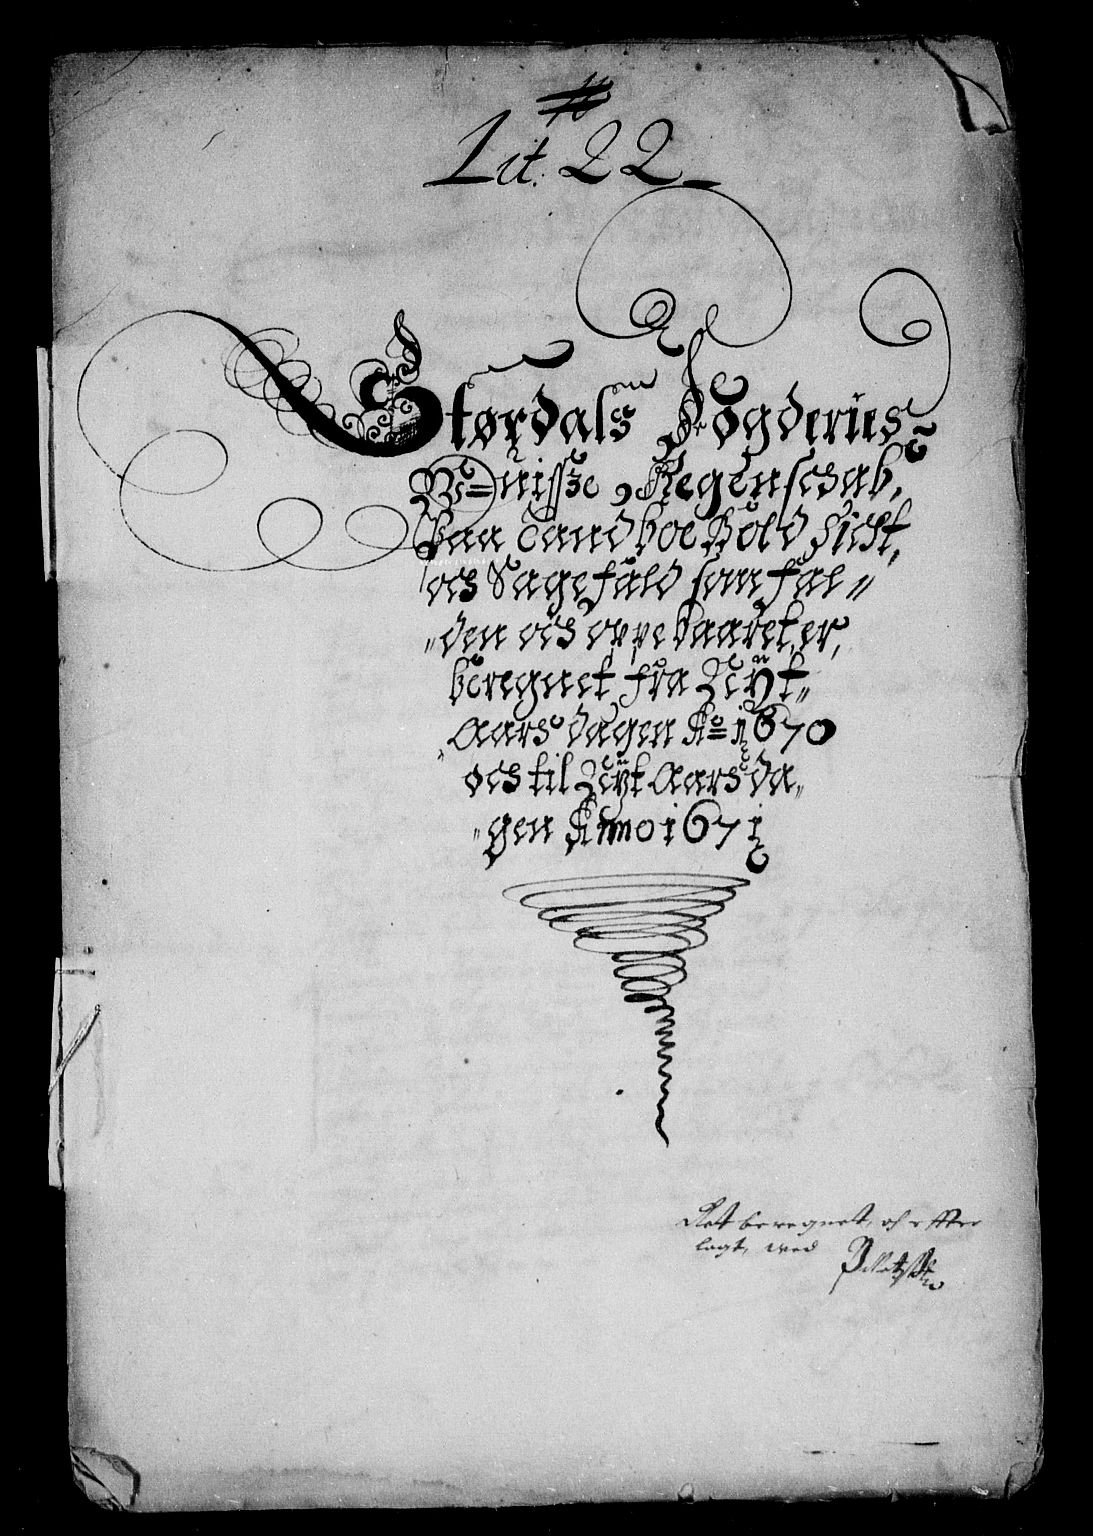 Lit: 22
Størdals Fogderies
Wisse Regenscab,
Paa Landboe Bold Sict,
och Sagefald som fal=
=den och oppebaaret er,
beregnet fra Nÿt
Aars dagen Ao 1670
och til Nÿt Aars da=
=gen Anno 1671
Ret beregnet, och effter
lagt, med